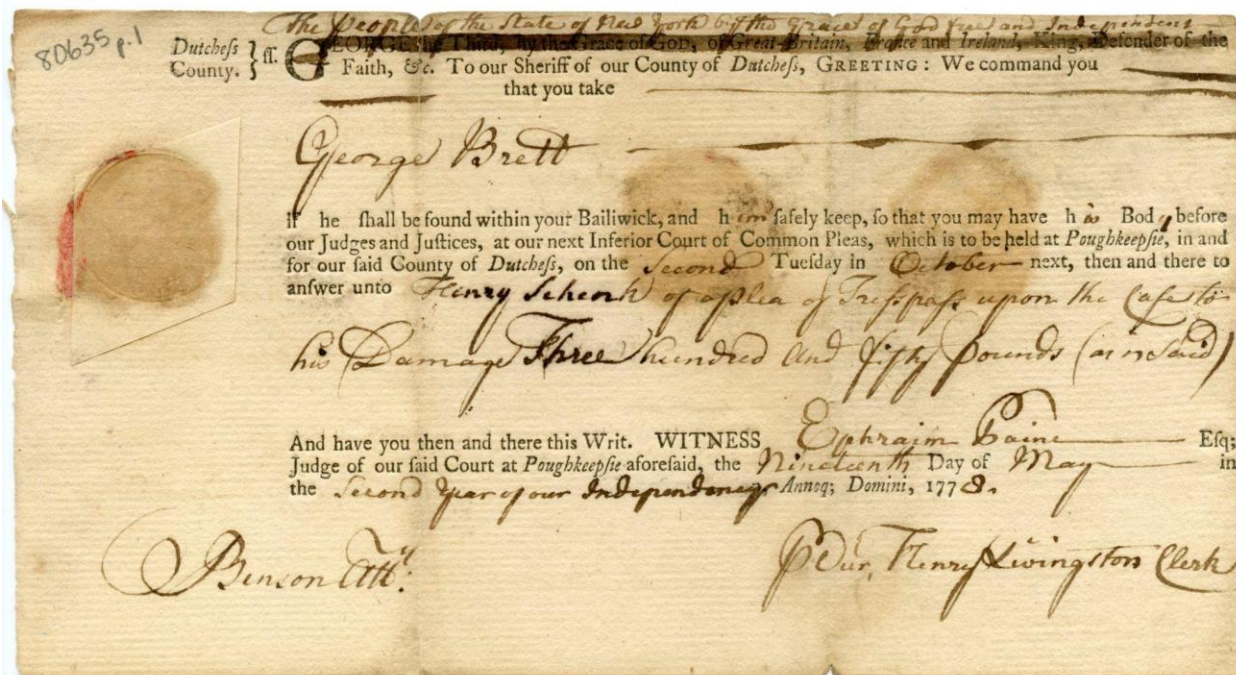 The People of the State of New York by the Grace of God free and Independent
80635 p.1
Dutcheſs County. } ſſ. GEORGE the Third, by the Grace of GOD, of Great-Britain, France and Ireland, King, Defender of the
Faith, &c. To our Sheriff of our County of Dutcheſs, GREETING: We command you
that you take
George Brett
if he ſhall be found within your Bailiwick, and him ſafely keep, ſo that you may have his Body before
our Judges and Juſtices, at our next Inferior Court of Common Pleas, which is to be held at Poughkeepſie, in and
for our ſaid County of Dutcheſs, on the Second Tueſday in October next, then and there to
anſwer unto Henry Schenk of a plea of Treſpaſs upon the Caſe to
his Damage Three hundred and fifty Pounds (as is Said)
And have you then and there this Writ. WITNESS Ephraim Paine Eſq;
Judge of our ſaid Court at Poughkeepſie aforeſaid, the Nineteenth Day of May in
the Second Year of our Independency Annoq; Domini, 1778.
Benson Atty.
Henry Livingston Clerk